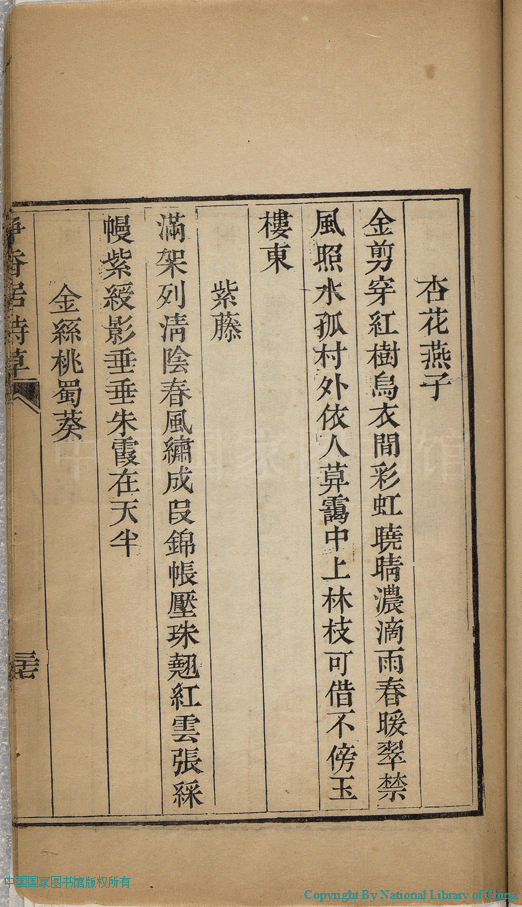 杏花燕子
金剪穿紅樹烏衣間彩虹曉晴濃滴雨春暖翠禁
風照水孤村外依人草靄中上林枝可借不傍玉
樓東
紫藤
滿架列清陰春風繡成段錦帳壓珠翹紅雲張綵
幔紫綬影垂垂朱霞在天半
金絲桃蜀葵
香居詩草
中国国家图书馆
中国国家图书馆版权所有
Copyright By National Library of China